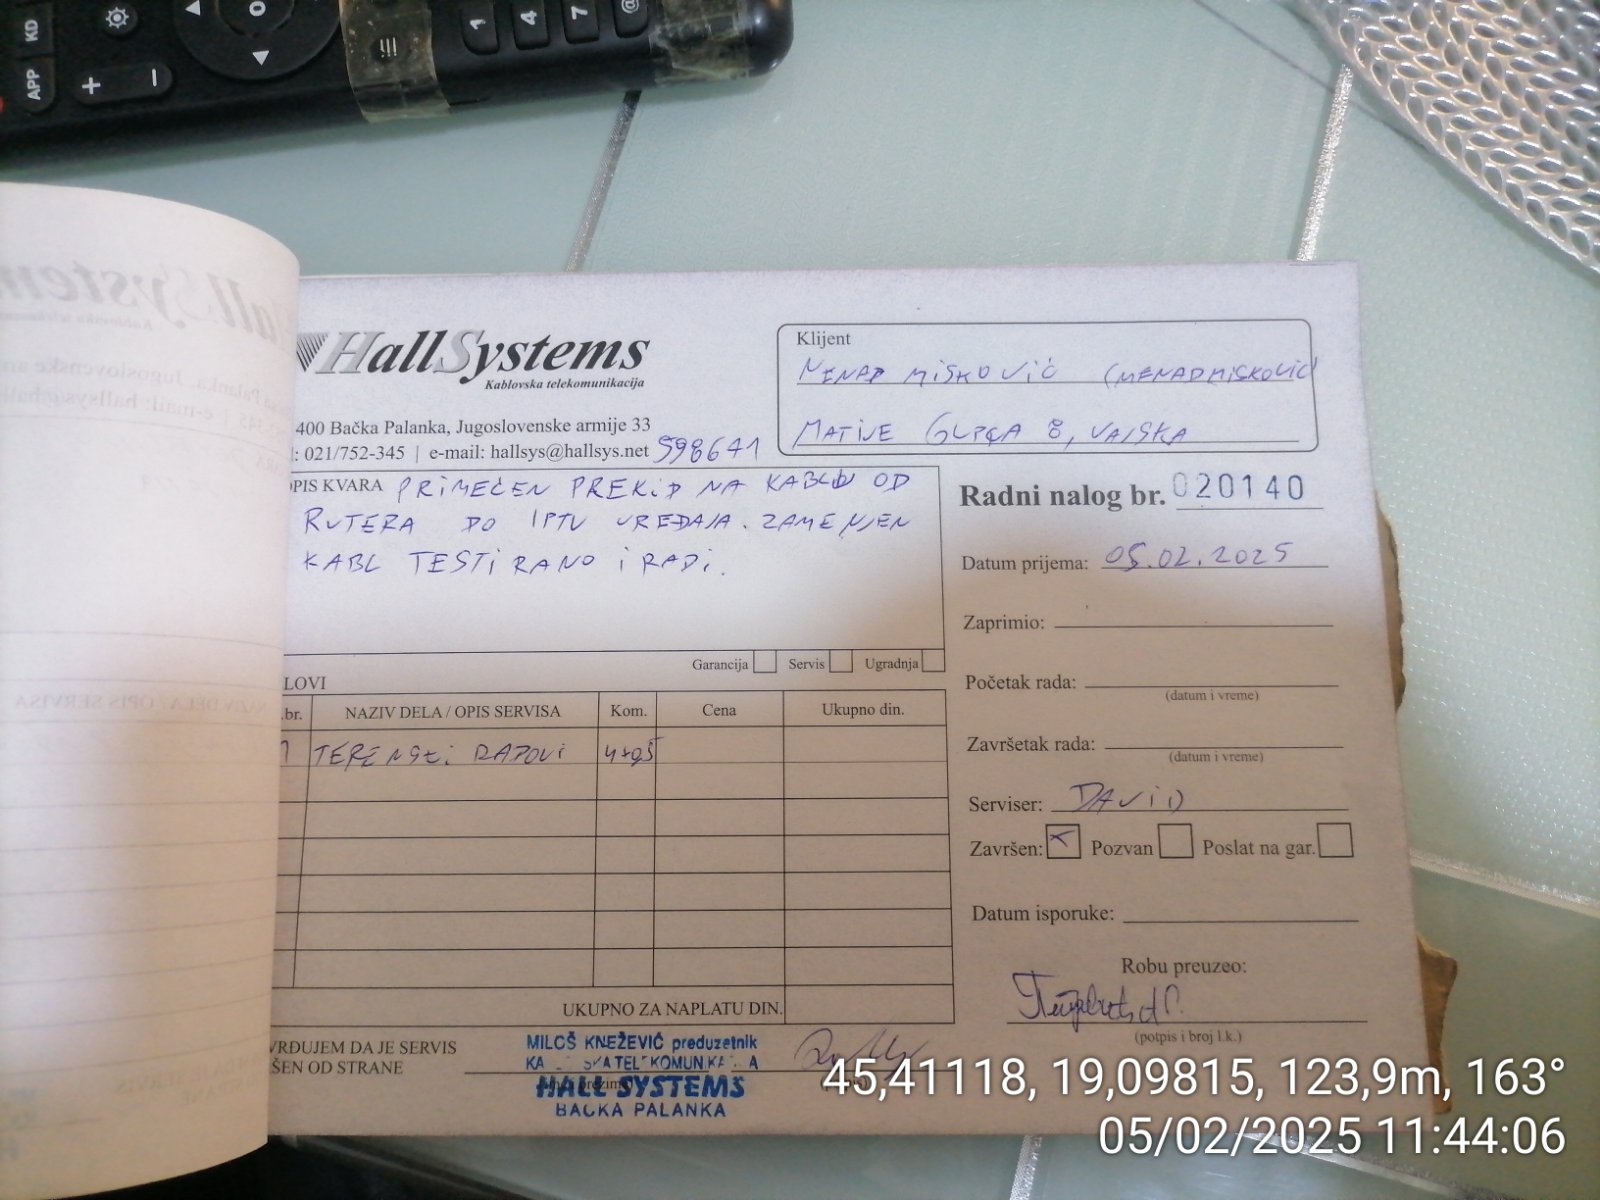 KD
APP
1
4
7
HallSystems
Kablovska telekomunikacija
400 Bačka Palanka, Jugoslovenske armije 33
: 021/752-345 | e-mail: hallsys@hallsys.net 598641
Klijent
NENAD MiSKOVić (MENADMISKOVIC)
MATIJE GUPCA 8, VAJSKA
OPIS KVARA PRIMEĆEN PREKiD NA KABLU OD
RUTERA DO IPTV UREĐAJA. ZAMENJEN
KABL TESTIRANO i RADi.
Garancija Servis Ugradnja
Radni nalog br. 020140
Datum prijema: 05.02.2025
Zaprimio:
Početak rada:
(datum i vreme)
Završetak rada:
(datum i vreme)
Serviser: DAVID
Završen: x Pozvan Poslat na gar.
Datum isporuke:
Robu preuzeo:
(potpis i broj l.k.)
LOVI
.br. NAZIV DELA / OPIS SERVISA Kom. Cena Ukupno din.
1 TERENSKi RADOVI
UKUPNO ZA NAPLATU DIN.
VRĐUJEM DA JE SERVIS
ŠEN OD STRANE
MILOŠ KNEŽEVIĆ preduzetnik
HALL SYSTEMS
BAČKA PALANKA
45,41118, 19,09815, 123,9m, 163°
05/02/2025 11:44:06